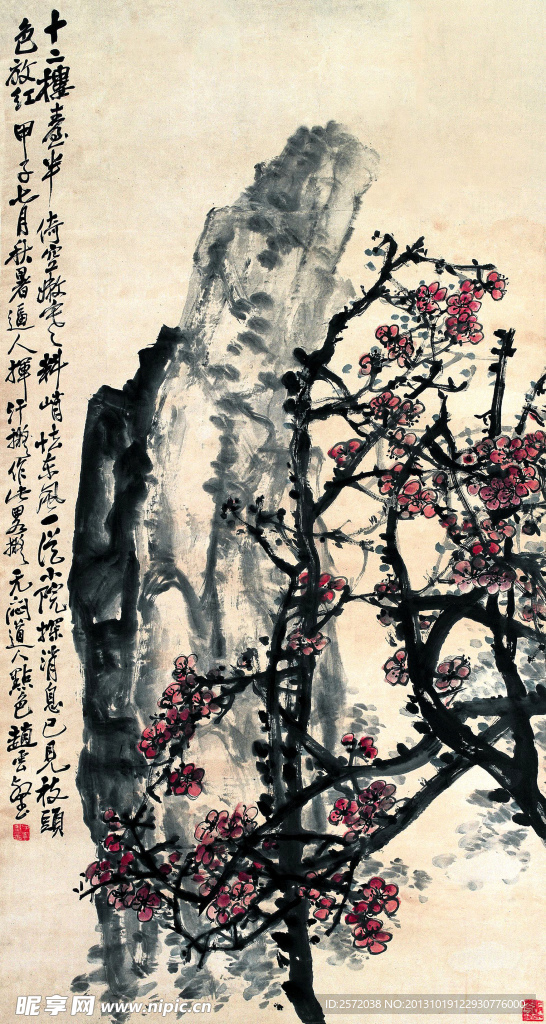 十二楼臺半倚空嫩寒料峭怯東風一從小院探消息已見枝頭
色放紅 甲子七月秋暑逼人揮汗擬作此畧擬元悶道人點色趙雲壑
昵享网 www.nipic.cn
ID:2572038 NO:20131019122930776000